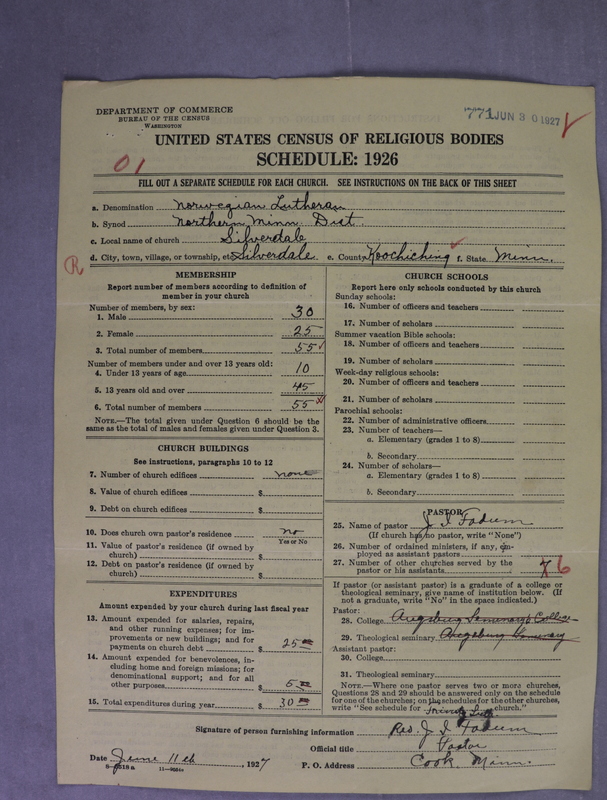 DEPARTMENT OF COMMERCE
BUREAU OF THE CENSUS
WASHINGTON
771 JUN 30 1927
UNITED STATES CENSUS OF RELIGIOUS BODIES
SCHEDULE: 1926
01
FILL OUT A SEPARATE SCHEDULE FOR EACH CHURCH. SEE INSTRUCTIONS ON THE BACK OF THIS SHEET
a. Denomination Norwegian Lutheran
b. Synod Northern Minn. Dist.
c. Local name of church Silverdale
d. City, town, village, or township, etc. Silverdale e. County Koochiching f. State Minn.
R
MEMBERSHIP
Report number of members according to definition of
member in your church
Number of members, by sex:
1. Male 30
2. Female 25
3. Total number of members 55
Number of members under and over 13 years old:
4. Under 13 years of age 10
5. 13 years old and over 45
6. Total number of members 55
NOTE.—The total given under Question 6 should be the
same as the total of males and females given under Question 3.
CHURCH BUILDINGS
See instructions, paragraphs 10 to 12
7. Number of church edifices none
8. Value of church edifices $
9. Debt on church edifices $
10. Does church own pastor's residence? no
Yes or No
11. Value of pastor's residence (if owned by
church) $
12. Debt on pastor's residence (if owned by
church) $
EXPENDITURES
Amount expended by your church during last fiscal year
13. Amount expended for salaries, repairs,
and other running expenses; for im-
provements or new buildings; and for
payments on church debt $ 25 00
14. Amount expended for benevolences, in-
cluding home and foreign missions; for
denominational support; and for all
other purposes $ 5 00
15. Total expenditures during year $ 30 00
CHURCH SCHOOLS
Report here only schools conducted by this church
Sunday schools:
16. Number of officers and teachers
17. Number of scholars
Summer vacation Bible schools:
18. Number of officers and teachers
19. Number of scholars
Week-day religious schools:
20. Number of officers and teachers
21. Number of scholars
Parochial schools:
22. Number of administrative officers
23. Number of teachers—
a. Elementary (grades 1 to 8)
b. Secondary
24. Number of scholars—
a. Elementary (grades 1 to 8)
b. Secondary
PASTOR
25. Name of pastor J. I. Fadum
(If church has no pastor, write "None")
26. Number of ordained ministers, if any, em-
ployed as assistant pastors
27. Number of other churches served by the
pastor or his assistants 7 6
If pastor (or assistant pastor) is a graduate of a college or
theological seminary, give name of institution below. (If
not a graduate, write "No" in the space indicated.)
Pastor:
28. College Augsburg Seminary & College
29. Theological seminary Augsburg Seminary
Assistant pastor:
30. College
31. Theological seminary
NOTE.—Where one pastor serves two or more churches,
Questions 28 and 29 should be answered only on the schedule
for one of the churches; on the schedules for the other churches,
write "See schedule for church."
Signature of person furnishing information Rev. J. I. Fadum
Official title Pastor
Date June 11th, 1927 P. O. Address Cook, Minn.